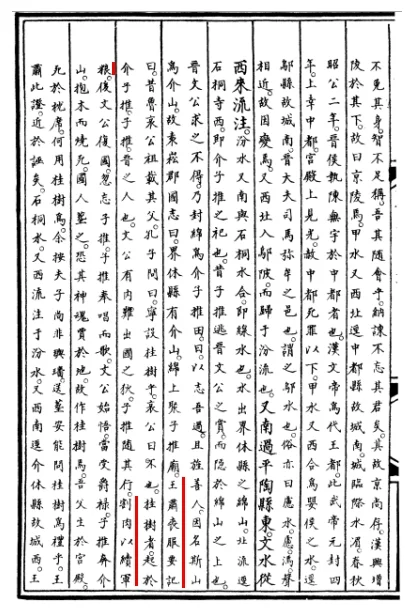 不免其身。智不足稱。吾其隨會乎。納諫不忘其君矣。其故京尚存。漢興增
陵於其下。故曰京陵焉。甲水又西北逕中都縣故城南。城臨際水湄。春秋
昭公二年。晉侯執陳無宇於中都者也。漢文帝為代王都此。武帝元封四
年。上幸中都宮。殿上見光。赦中都死罪以下。甲水又西合嬰侯之水。逕
鄔縣故城南。晉大夫司馬彌牟之邑也。謂之鄔水也。俗亦曰慮水。慮鄔聲
相近。故因變焉。又西北入鄔陂。而歸于汾流也。又南過平陶縣東。文水從
西來流注。汾水又南與石桐水合。即綿水也。水出界休縣之綿山。北流逕
石桐寺西。即介子推之祠也。昔子推逃晉文公之賞。而隱於綿山之上也。
晉文公求之不得。乃封綿為介子推田。曰以志吾過。且旌善人。因名斯山
為介山。故袁崧郡國志曰。界休縣有介山。綿上聚。子推廟。王肅喪服要記
曰。昔魯哀公祖載其父。孔子問曰。寧設桂樹乎。哀公曰。不也。桂樹者。起於
介子推。子推。晉之人也。文公有內難。出國之狄。子推隨其行。割肉以續軍
糧。後文公復國。忽忘子推。子推奉唱而歌。文公始悟。當受爵祿。子推奔介
山。抱木而燒死。國人葬之。恐其神魂賣於地。故作桂樹焉。吾父生於宮殿。
死於枕席。何用桂樹為。余按夫子尚非璵璠送葬。安能問桂樹為禮乎。王
肅此證。近於誣矣。石桐水又西流注于汾水。又西南逕介休縣故城西。王